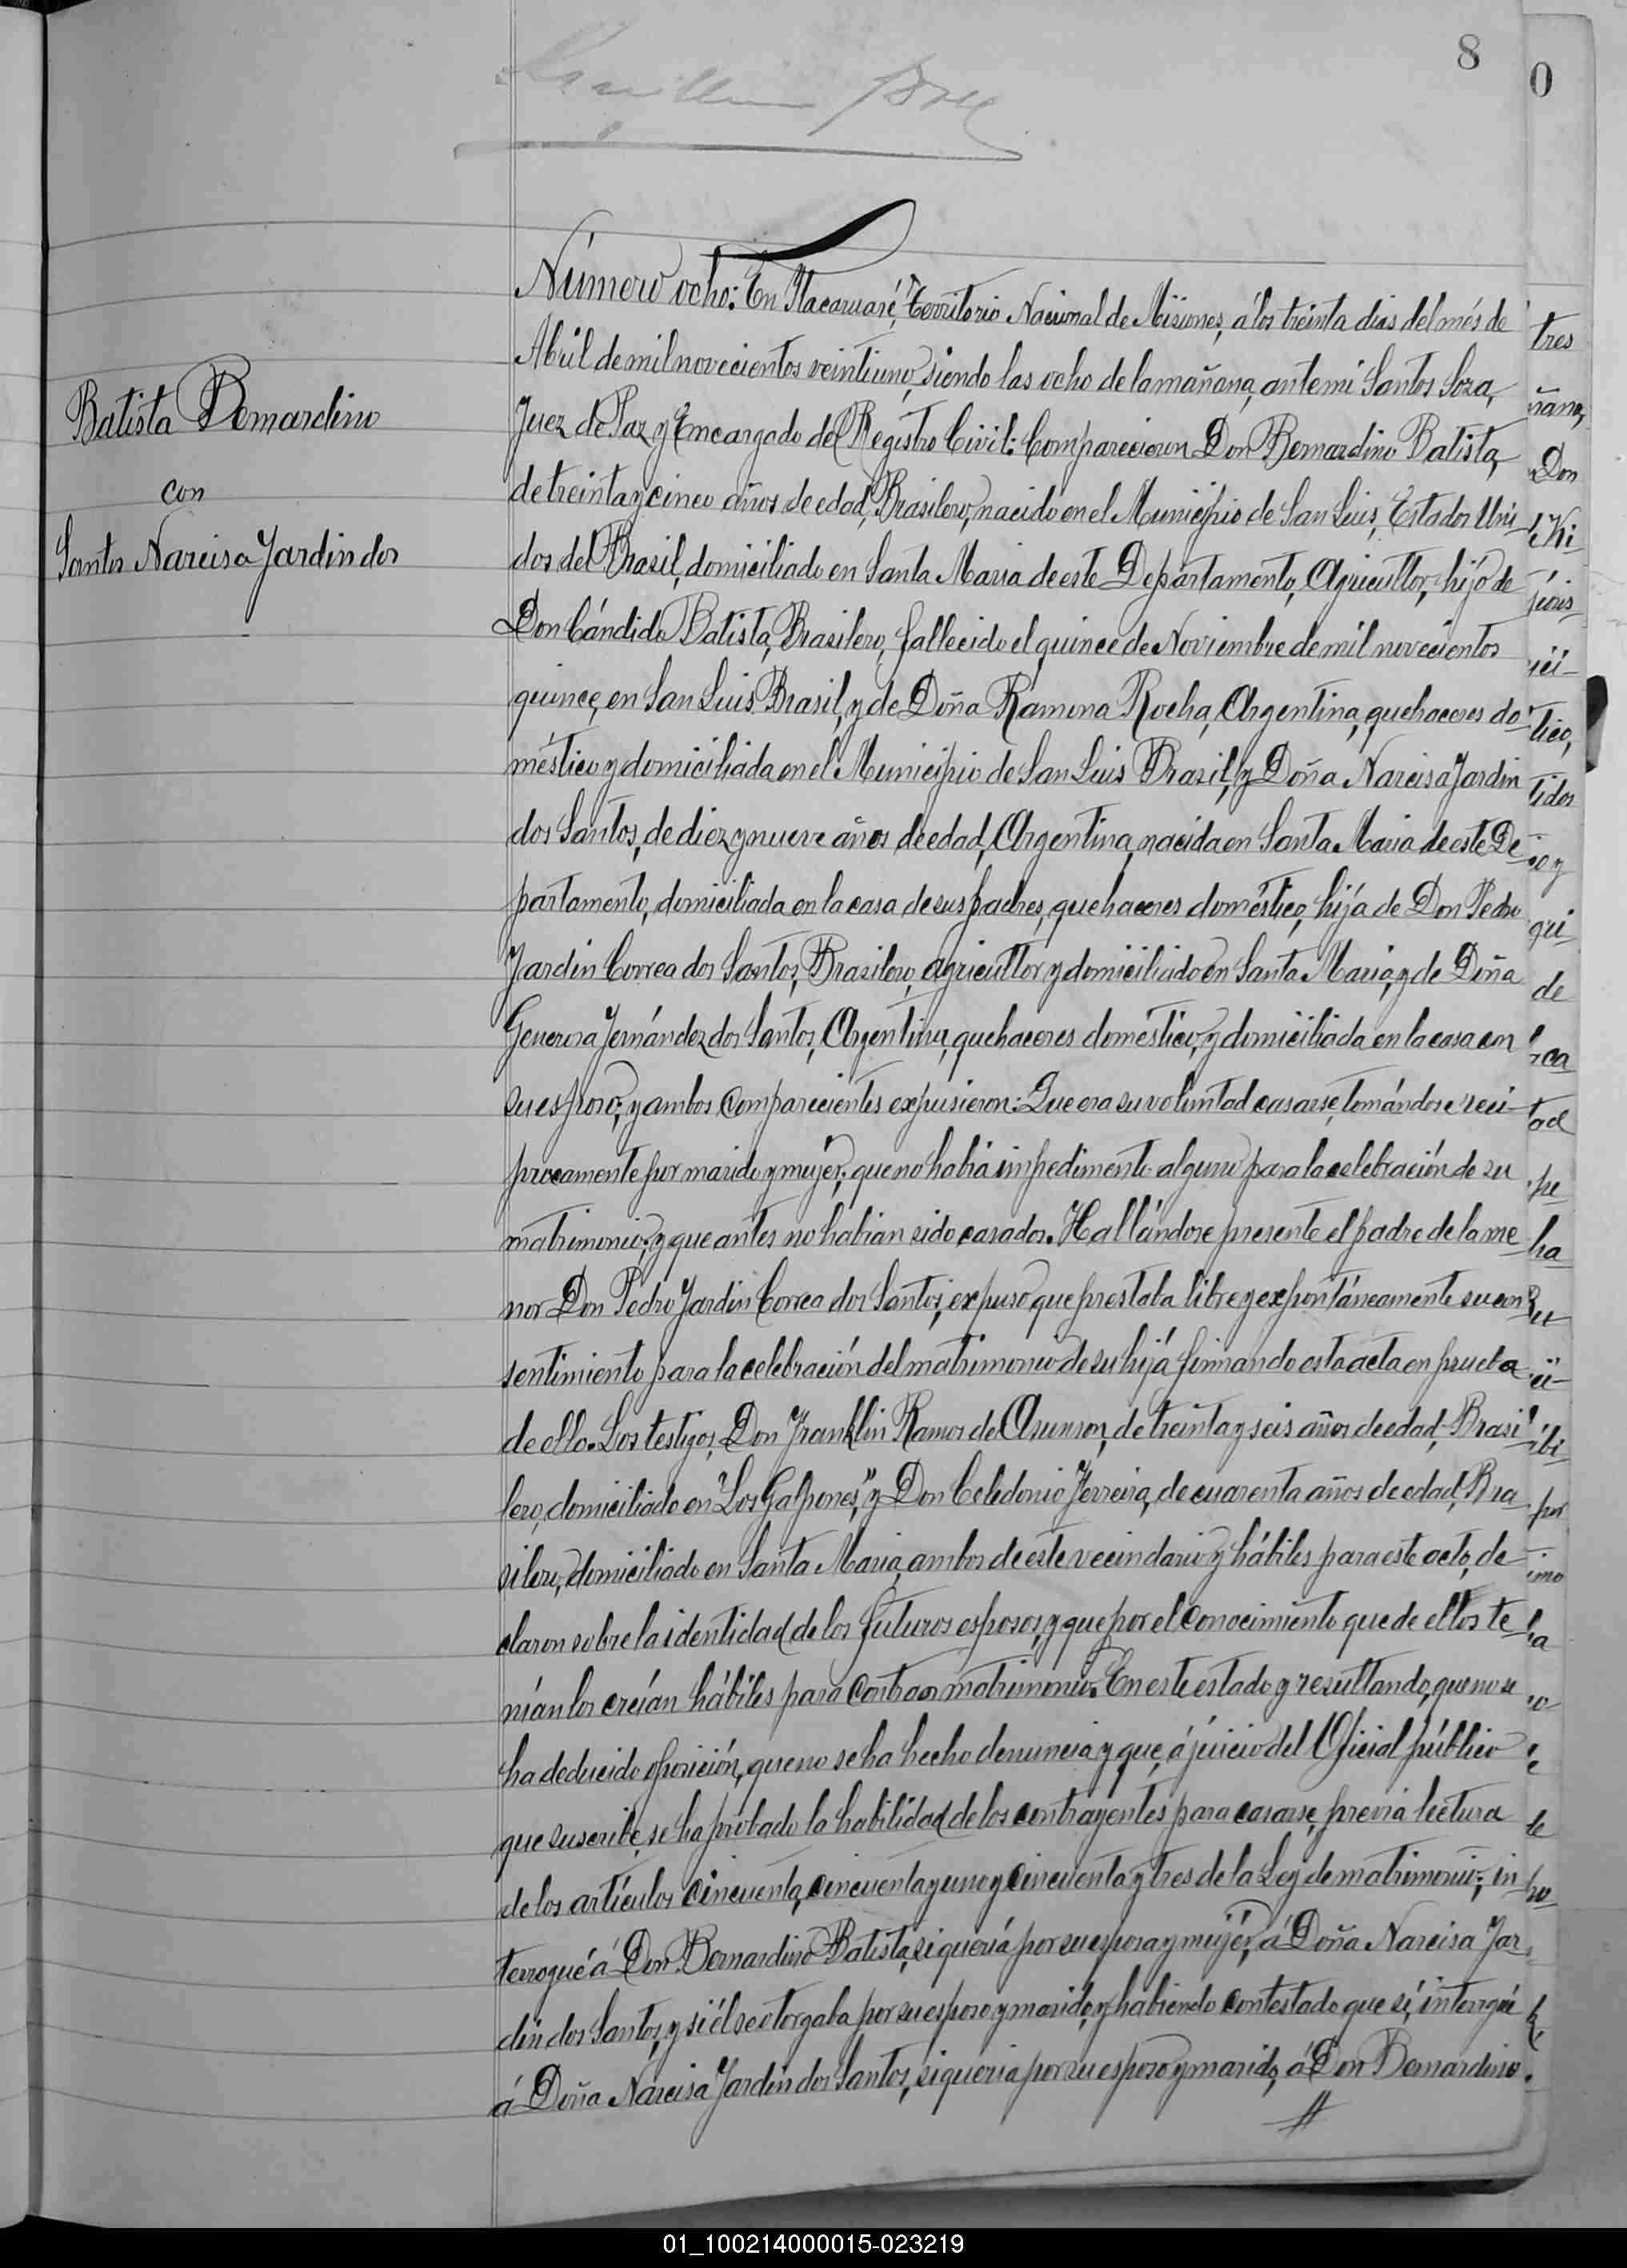 8
0
Número ocho: En Itacaruaré, Territorio Nacional de Misiones, á los treinta dias del més de
Abril de mil novecientos veintiuno, siendo las ocho de la mañana, ante mi Santos Soza,
Juez de Paz y Encargado del Registro Civil: Comparecieron Don Bernardino Batista,
de treinta y cinco años de edad, Brasilero, nacido en el Municipio de San Luis, Estados Uni-
dos del Brasil, domiciliado en Santa Maria de este Departamento, Agricultor, hijo de
Don Cándido Batista, Brasilero, fallecido el quince de Noviembre de mil novecientos
quince, en San Luis Brasil, y de Doña Ramona Rocha, Argentina, quehaceres do-
méstico y domiciliada en el Municipio de San Luis Brasil, y Doña Narcisa Jardin
dos Santos, de diez y nueve años de edad, Argentina, nacida en Santa Maria de este De-
partamento, domiciliada en la casa de sus padres, quehaceres doméstico, hija de Don Pedro
Jardin Correa dos Santos, Brasilero, agricultor y domiciliado en Santa Maria, y de Doña
Generosa Fernández dos Santos, Argentina, quehaceres doméstico, y domiciliada en la casa con
su esposo; y ambos Comparecientes expusieron: Que era su voluntad casarse, tomándose reci-
procamente por marido y mujer; que no había impedimento alguno para la celebración de su
matrimonio; y que antes no habían sido casados. Hallándose presente el padre de la me-
nor Don Pedro Jardin Correa dos Santos, expuso que prestaba libre y expontáneamente su con-
sentimiento para la celebración del matrimonio de su hija firmando esta acta en prueba
de ello. Los testigos, Don Franklin Ramos de Asunson, de treinta y seis años de edad, Brasi-
lero, domiciliado en "Los Galpones," y Don Celedonio Ferreira, de cuarenta años de edad, Bra-
silero, domiciliado en Santa Maria, ambos de este vecindario y hábiles para este acto, de-
claron sobre la identidad de los futuros esposos, y que por el conocimiento que de ellos te-
nían los creían hábiles para contraer matrimonio. En este estado y resultando, que no se
ha deducido oposición, que no se ha hecho denuncia y que, á juicio del Oficial público
que suscribe, se ha probado la habilidad de los contrayentes para casarse, previa lectura
de los artículos cincuenta, cincuenta y uno y cincuenta y tres de la Ley de matrimonio; in-
terrogué á Don Bernardino Batista, si quería por su esposa y mujer, á Doña Narcisa Jar-
din dos Santos, y si él se otorgaba por su esposo y marido, y habiendo contestado que sí, interrogué
á Doña Narcisa Jardin dos Santos, si queria por su esposo y marido, á Don Bernardino
Batista Bernardino
con
Santos Narcisa Jardin dos
tres
ñana,
Don
tico,
tidos
qui-
de
tad
ha
por
la
01_100214000015-023219